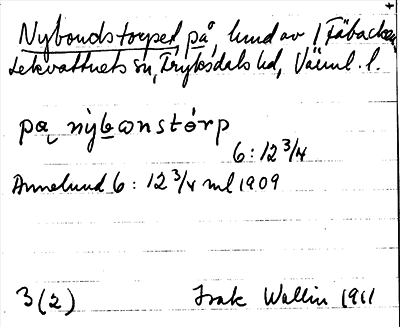 Nybondstorpet, på, lund av 1 Fäbacken
Lekvattnets sn, Fryksdals hd, Värml. l.
pą nỳbωnstórp
6:12 3/4
Annelund 6:12 3/4 ml 1909
3(2) Isak Wallin 1911